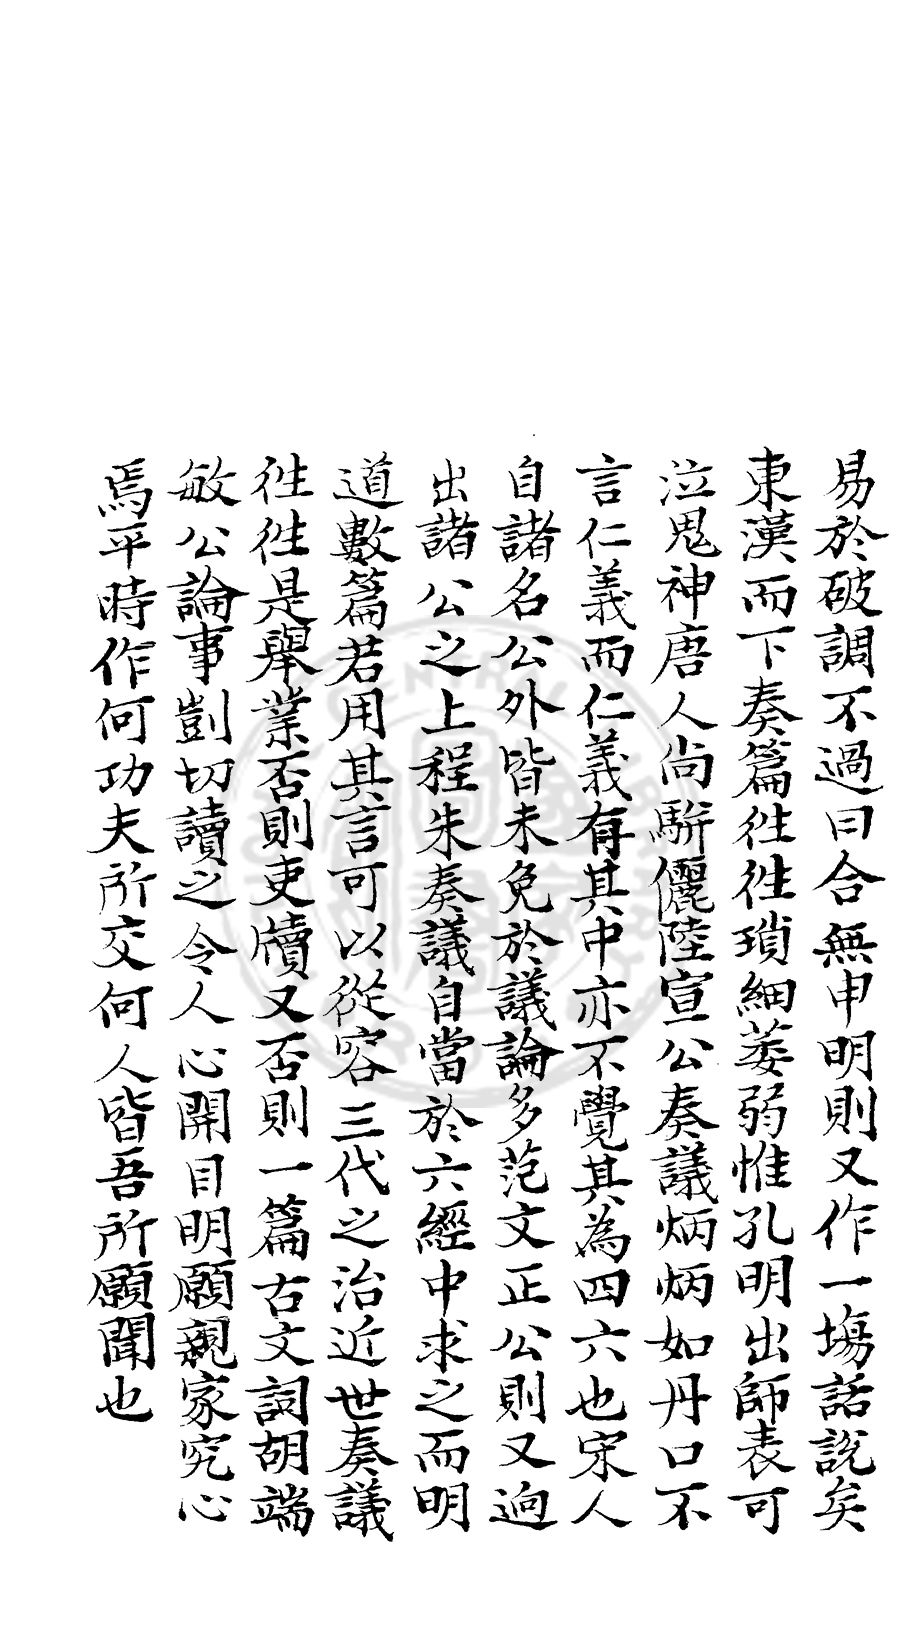 易於破調不過曰合無申明則又作一塲話說矣
東漢而下奏篇徃徃瑣細萎弱惟孔明出師表可
泣鬼神唐人尚騈儷陸宣公奏議炳炳如丹口不
言仁義而仁義有其中亦不覺其為四六也宋人
自諸名公外皆未免於議論多范文正公則又逈
出諸公之上程朱奏議自當於六經中求之而明
道數篇若用其言可以從容三代之治近世奏議
徃徃是舉業否則吏牘又否則一篇古文詞胡端
敏公論事剴切讀之令人心開目明願親家究心
焉平時作何功夫所交何人皆吾所願聞也